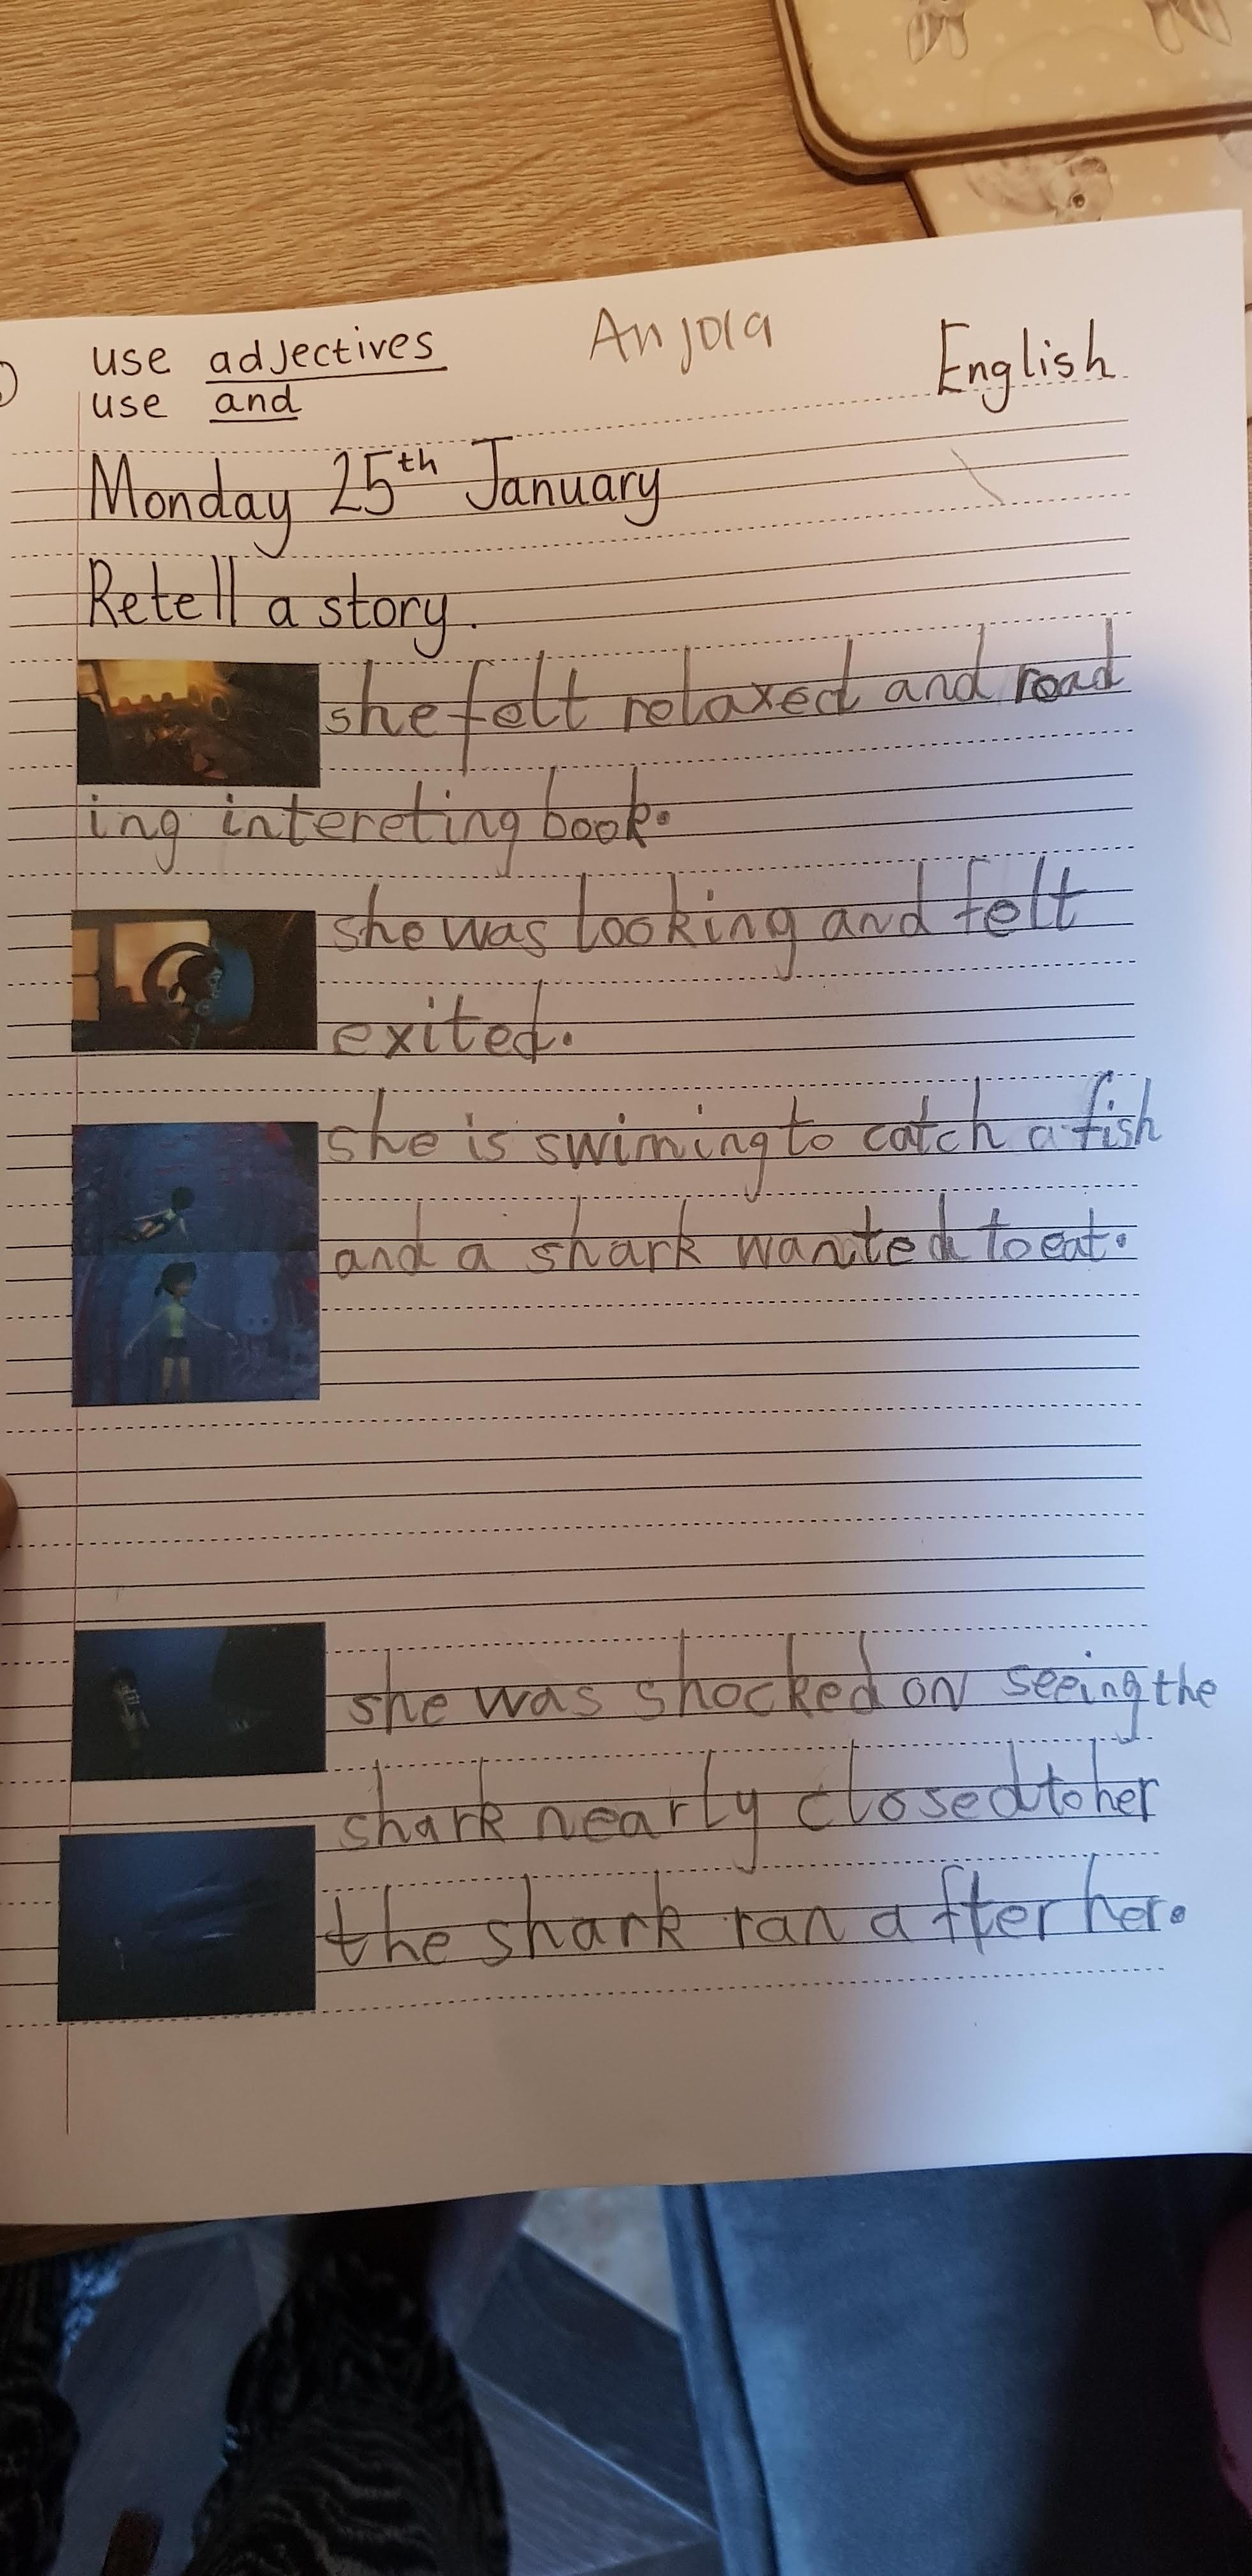 use adjectives
use and
Anjola
English
Monday 25th January
Retell a story.
she felt relaxed and read
ing intereting book.
she was looking and felt
exited.
she is swiming to catch a fish
and a shark wanted to eat.
she was shocked on seeing the
shark nearly closed to her
the shark ran after her.